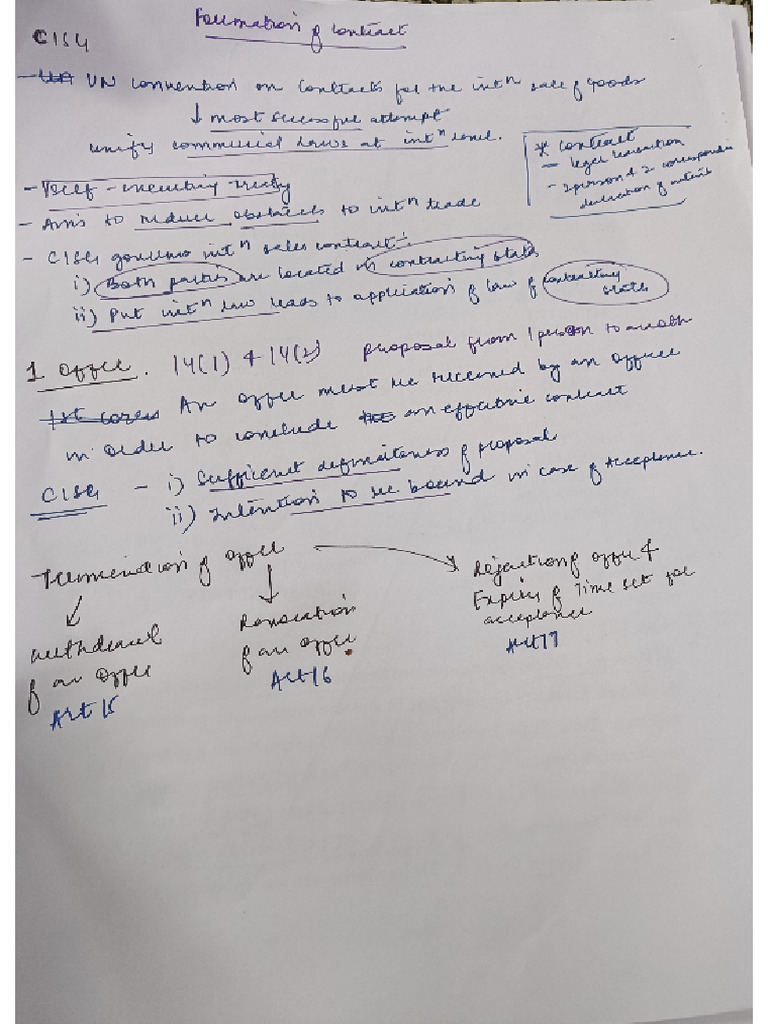 CISG
Formation of contract
- UN convention on contracts for the intⁿ sale of goods
↓ most successful attempt
unify commercial laws at intⁿ level.
* Contract
- legal transaction
- 2 person & 2 corresponding
declaration of intents
- self-executing treaty
- Aims to reduce obstacles to intⁿ trade
- CISG governs intⁿ sales contract:
i) Both parties are located in contracting state
ii) Pvt intⁿ law leads to application of law of contracting
state
1 Offer. 14(1) & 14(2) proposal from 1 person to another
An offer must be received by an offeree
in order to conclude an effective contract
CISG - i) Sufficient definiteness of proposal
ii) Intention to be bound in case of acceptance.
Termination of offer
withdrawal
of an offer
Art 15
Revocation
of an offer
Art 16
Rejection of offer &
Expiry of Time set for
acceptance
Art 17